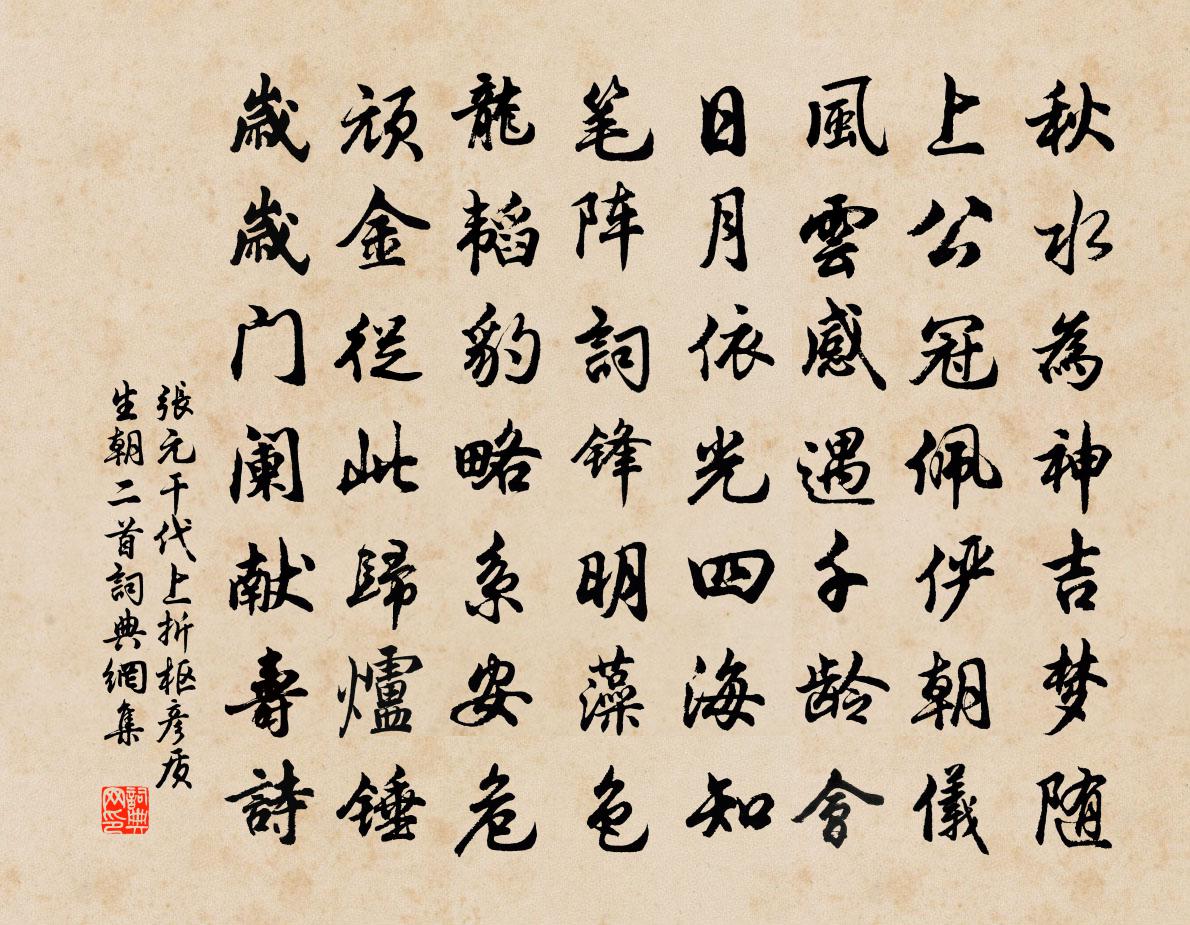 秋水為神吉梦随
上公冠佩俨朝儀
風雲感遇千龄會
日月依光四海知
笔阵詞锋明藻色
龍韬豹略系安危
顽金從此歸爐锤
歲歲门阑献壽詩
張元干代上折枢彦质
生朝二首詞典網集
詞典网印